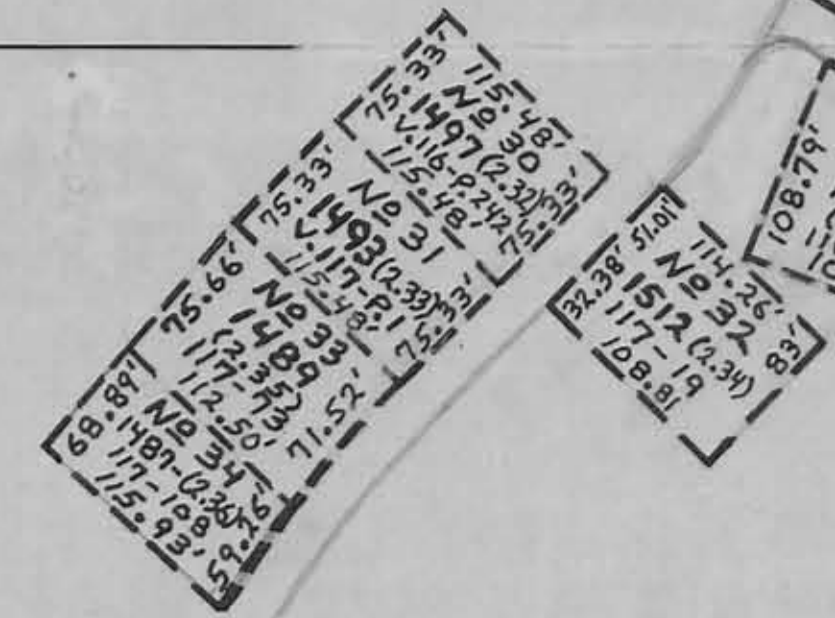 115.48'
75.33'
No 30
1497 (2.32)
V.116-P.242
115.48'
75.33'
75.33'
No 31
1493 (2.33)
V.117-P.1
115.48'
75.33'
75.66'
No 33
1489
(2.35)
117-73
112.50'
71.52'
68.89'
No 34
1487-(2.36)
117-108
115.93'
59.26'
51.01'
32.38'
114.26'
No 32
1512 (2.34)
117-19
108.81
83'
108.79'